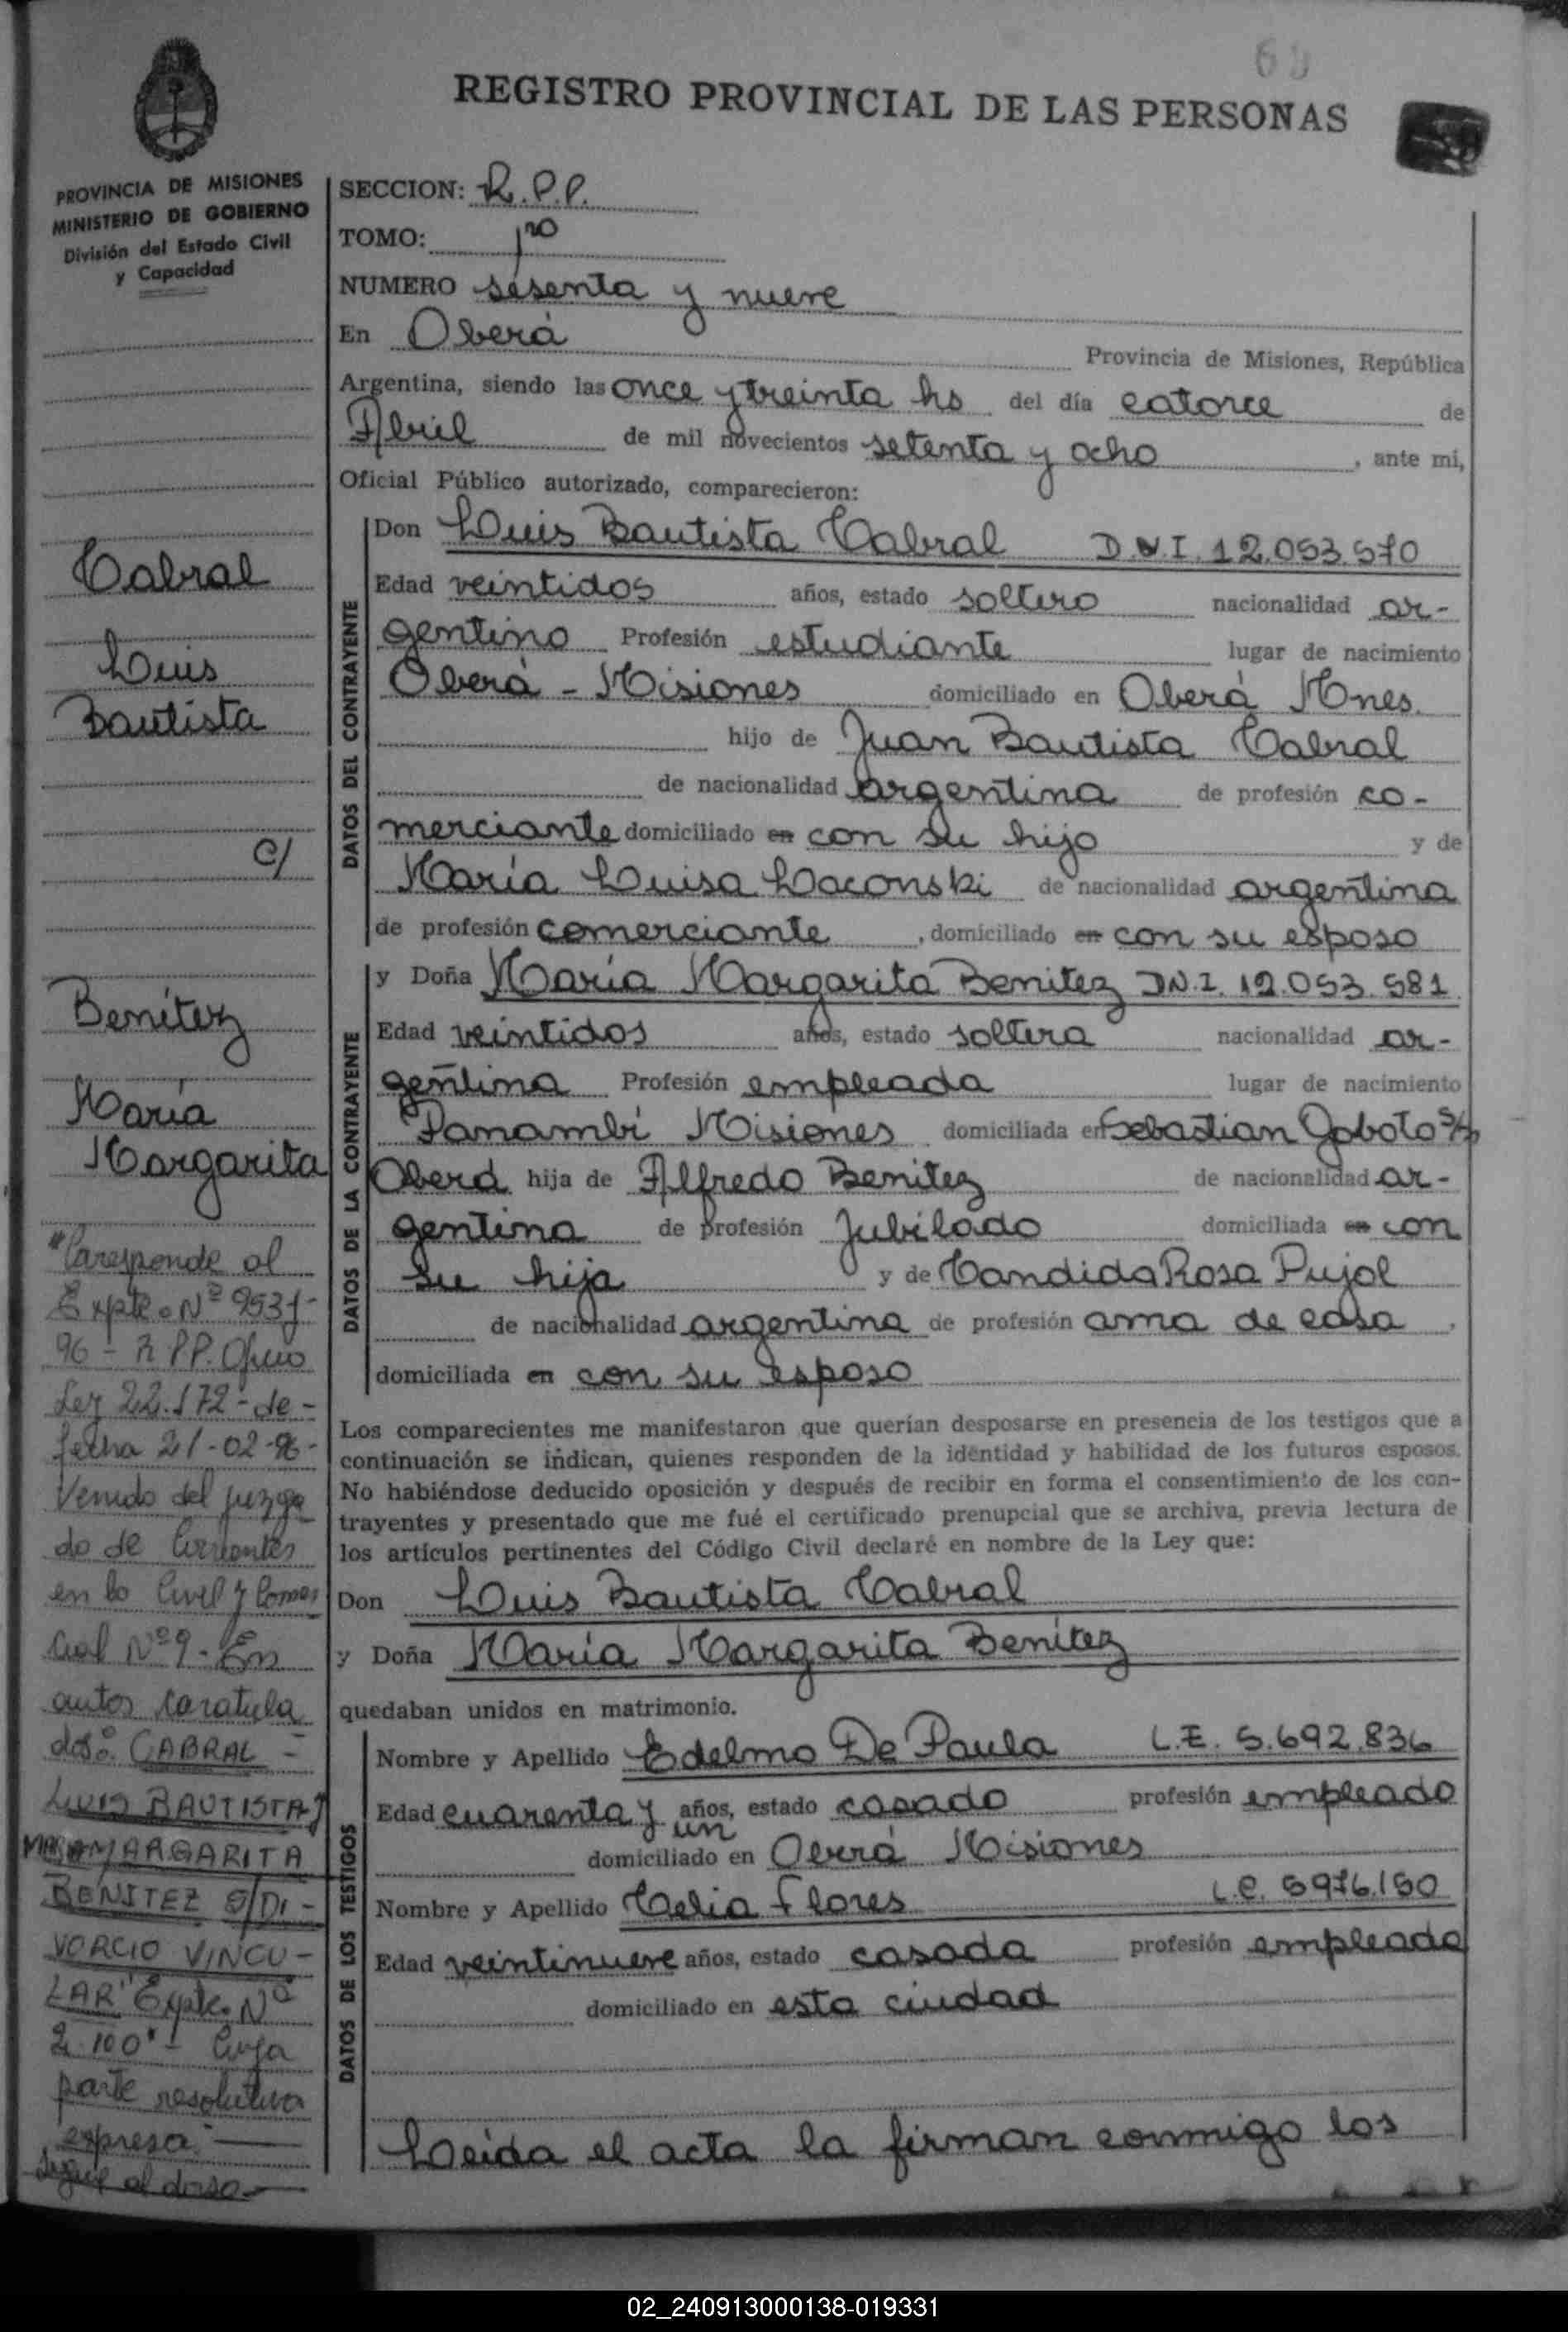 69
REGISTRO PROVINCIAL DE LAS PERSONAS
PROVINCIA DE MISIONES
MINISTERIO DE GOBIERNO
División del Estado Civil
y Capacidad
SECCION: R.P.P.
TOMO: 1ro
NUMERO sesenta y nueve
En Oberá Provincia de Misiones, República
Argentina, siendo las once y treinta hs del día catorce de
Abril de mil novecientos setenta y ocho, ante mi,
Oficial Público autorizado, comparecieron:
DATOS DEL CONTRAYENTE
Don Luis Bautista Cabral D.N.I. 12.053.570
Edad veintidos años, estado soltero nacionalidad ar-
gentino Profesión estudiante lugar de nacimiento
Oberá - Misiones domiciliado en Oberá Mnes.
hijo de Juan Bautista Cabral
de nacionalidad argentina de profesión co-
merciante domiciliado en con su hijo y de
María Luisa Laconski de nacionalidad argentina
de profesión comerciante, domiciliado en con su esposo
DATOS DE LA CONTRAYENTE
y Doña María Margarita Benitez D.N.I. 12.053.581
Edad veintidos años, estado soltera nacionalidad ar-
gentina Profesión empleada lugar de nacimiento
Panambí Misiones domiciliada en Sebastian Gaboto S/n
Oberá hija de Alfredo Benitez de nacionalidad ar-
gentina de profesión Jubilado domiciliada en con
su hija y de Candida Rosa Pujol
de nacionalidad argentina de profesión ama de casa,
domiciliada en con su esposo
Los comparecientes me manifestaron que querían desposarse en presencia de los testigos que a
continuación se indican, quienes responden de la identidad y habilidad de los futuros esposos.
No habiéndose deducido oposición y después de recibir en forma el consentimiento de los con-
trayentes y presentado que me fué el certificado prenupcial que se archiva, previa lectura de
los artículos pertinentes del Código Civil declaré en nombre de la Ley que:
Don Luis Bautista Cabral
y Doña María Margarita Benítez
quedaban unidos en matrimonio.
DATOS DE LOS TESTIGOS
Nombre y Apellido Edelmo De Paula L.E. 5.692.836
Edad cuarenta y un años, estado casado profesión empleado
domiciliado en Oberá Misiones
Nombre y Apellido Celia Flores L.C. 5976.150
Edad veintinueve años, estado casada profesión empleada
domiciliado en esta ciudad
Leída el acta la firman conmigo los
Cabral
Luis
Bautista
c/
Benítez
María
Margarita
"Coresponde al
Expte. Nº 953f-
96 - R.P.P. Oficio
Ley 22.172 - de -
fecha 21-02-96-
Venido del juzga
do de Corrientes
en lo Civil y Comer
cial Nº 9 - En
autos caratula
dos: CABRAL -
LUIS BAUTISTA y
MARIA MARGARITA
BENITEZ S/DI-
VORCIO VINCU-
LAR" Expte. Nº
2.100"- Cuya
parte resolutiva
expresa:
Sigue al dorso
02_240913000138-019331